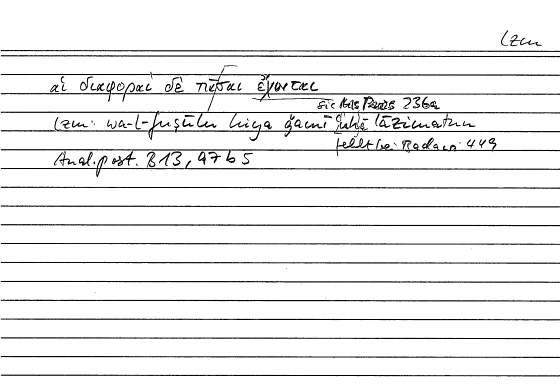 lzm
αἱ διαφοραὶ δὲ πᾶσαι ἔχονται
sic Hs Paris 236a
lzm: wa-l-fuṣūlu hiya ǧamīʿuhā lāzimatun
fehlt bei Badawi 449
Anal. post. B13, 97b5